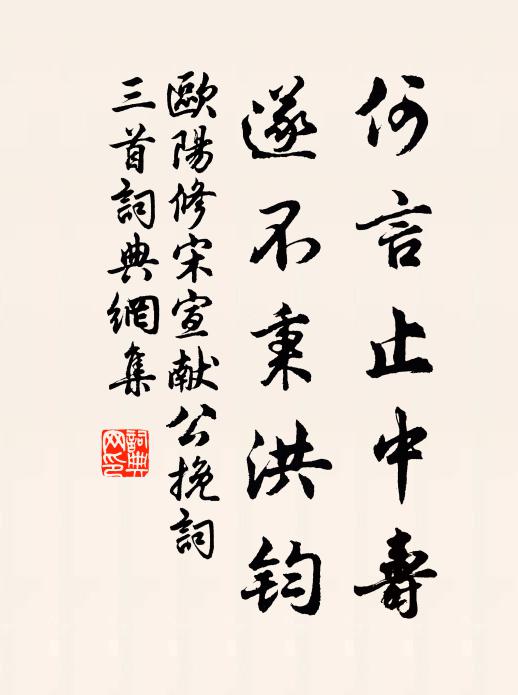 何言止中壽
遂不秉洪鈞
歐陽修宋宣献公挽詞
三首詞典網集
詞典
网印